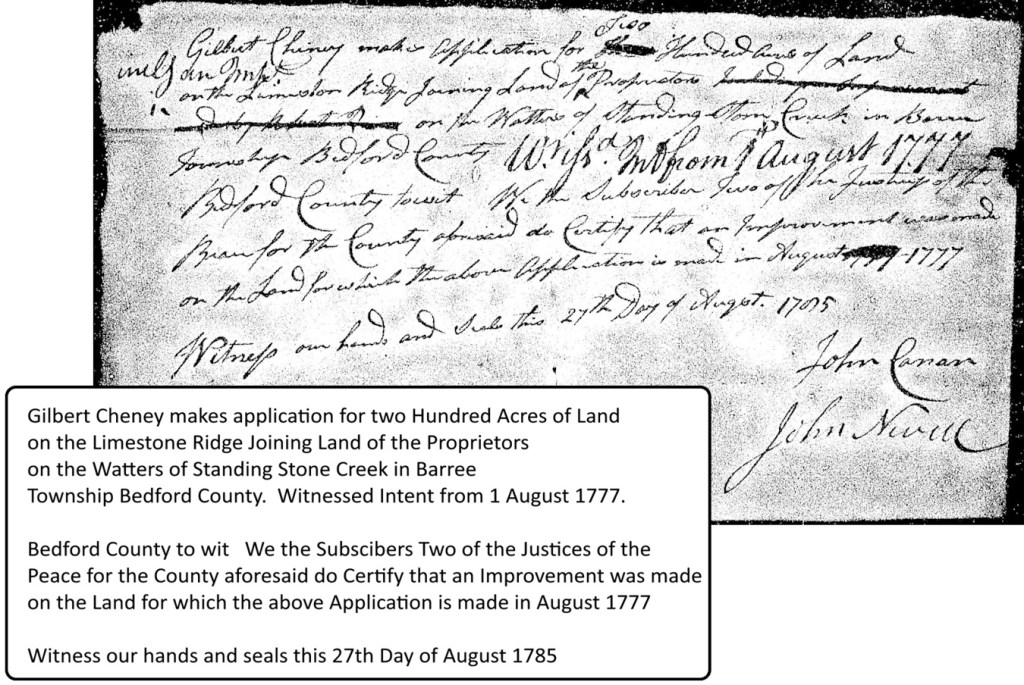 Two
Gilbert Cheney makes Application for Hundred Acres of Land
the
on the Limeston Ridge Joining Land of Proprietors
on the Watters of Standing Ston Creek in Barree
Township Bedford County Int from 1st August 1777
Bedford County towit We the Subscriber Two of the Justices of the
Peace for the County aforesaid do Certify that an Improvement was made
on the Land for which the above Application is made in August 1777
Witness our hands and Seals this 27th Day of Augst. 1785
John Canan
John Nevill
Gilbert Cheney makes application for two Hundred Acres of Land
on the Limestone Ridge Joining Land of the Proprietors
on the Watters of Standing Stone Creek in Barree
Township Bedford County. Witnessed Intent from 1 August 1777.
Bedford County to wit We the Subscibers Two of the Justices of the
Peace for the County aforesaid do Certify that an Improvement was made
on the Land for which the above Application is made in August 1777
Witness our hands and seals this 27th Day of August 1785